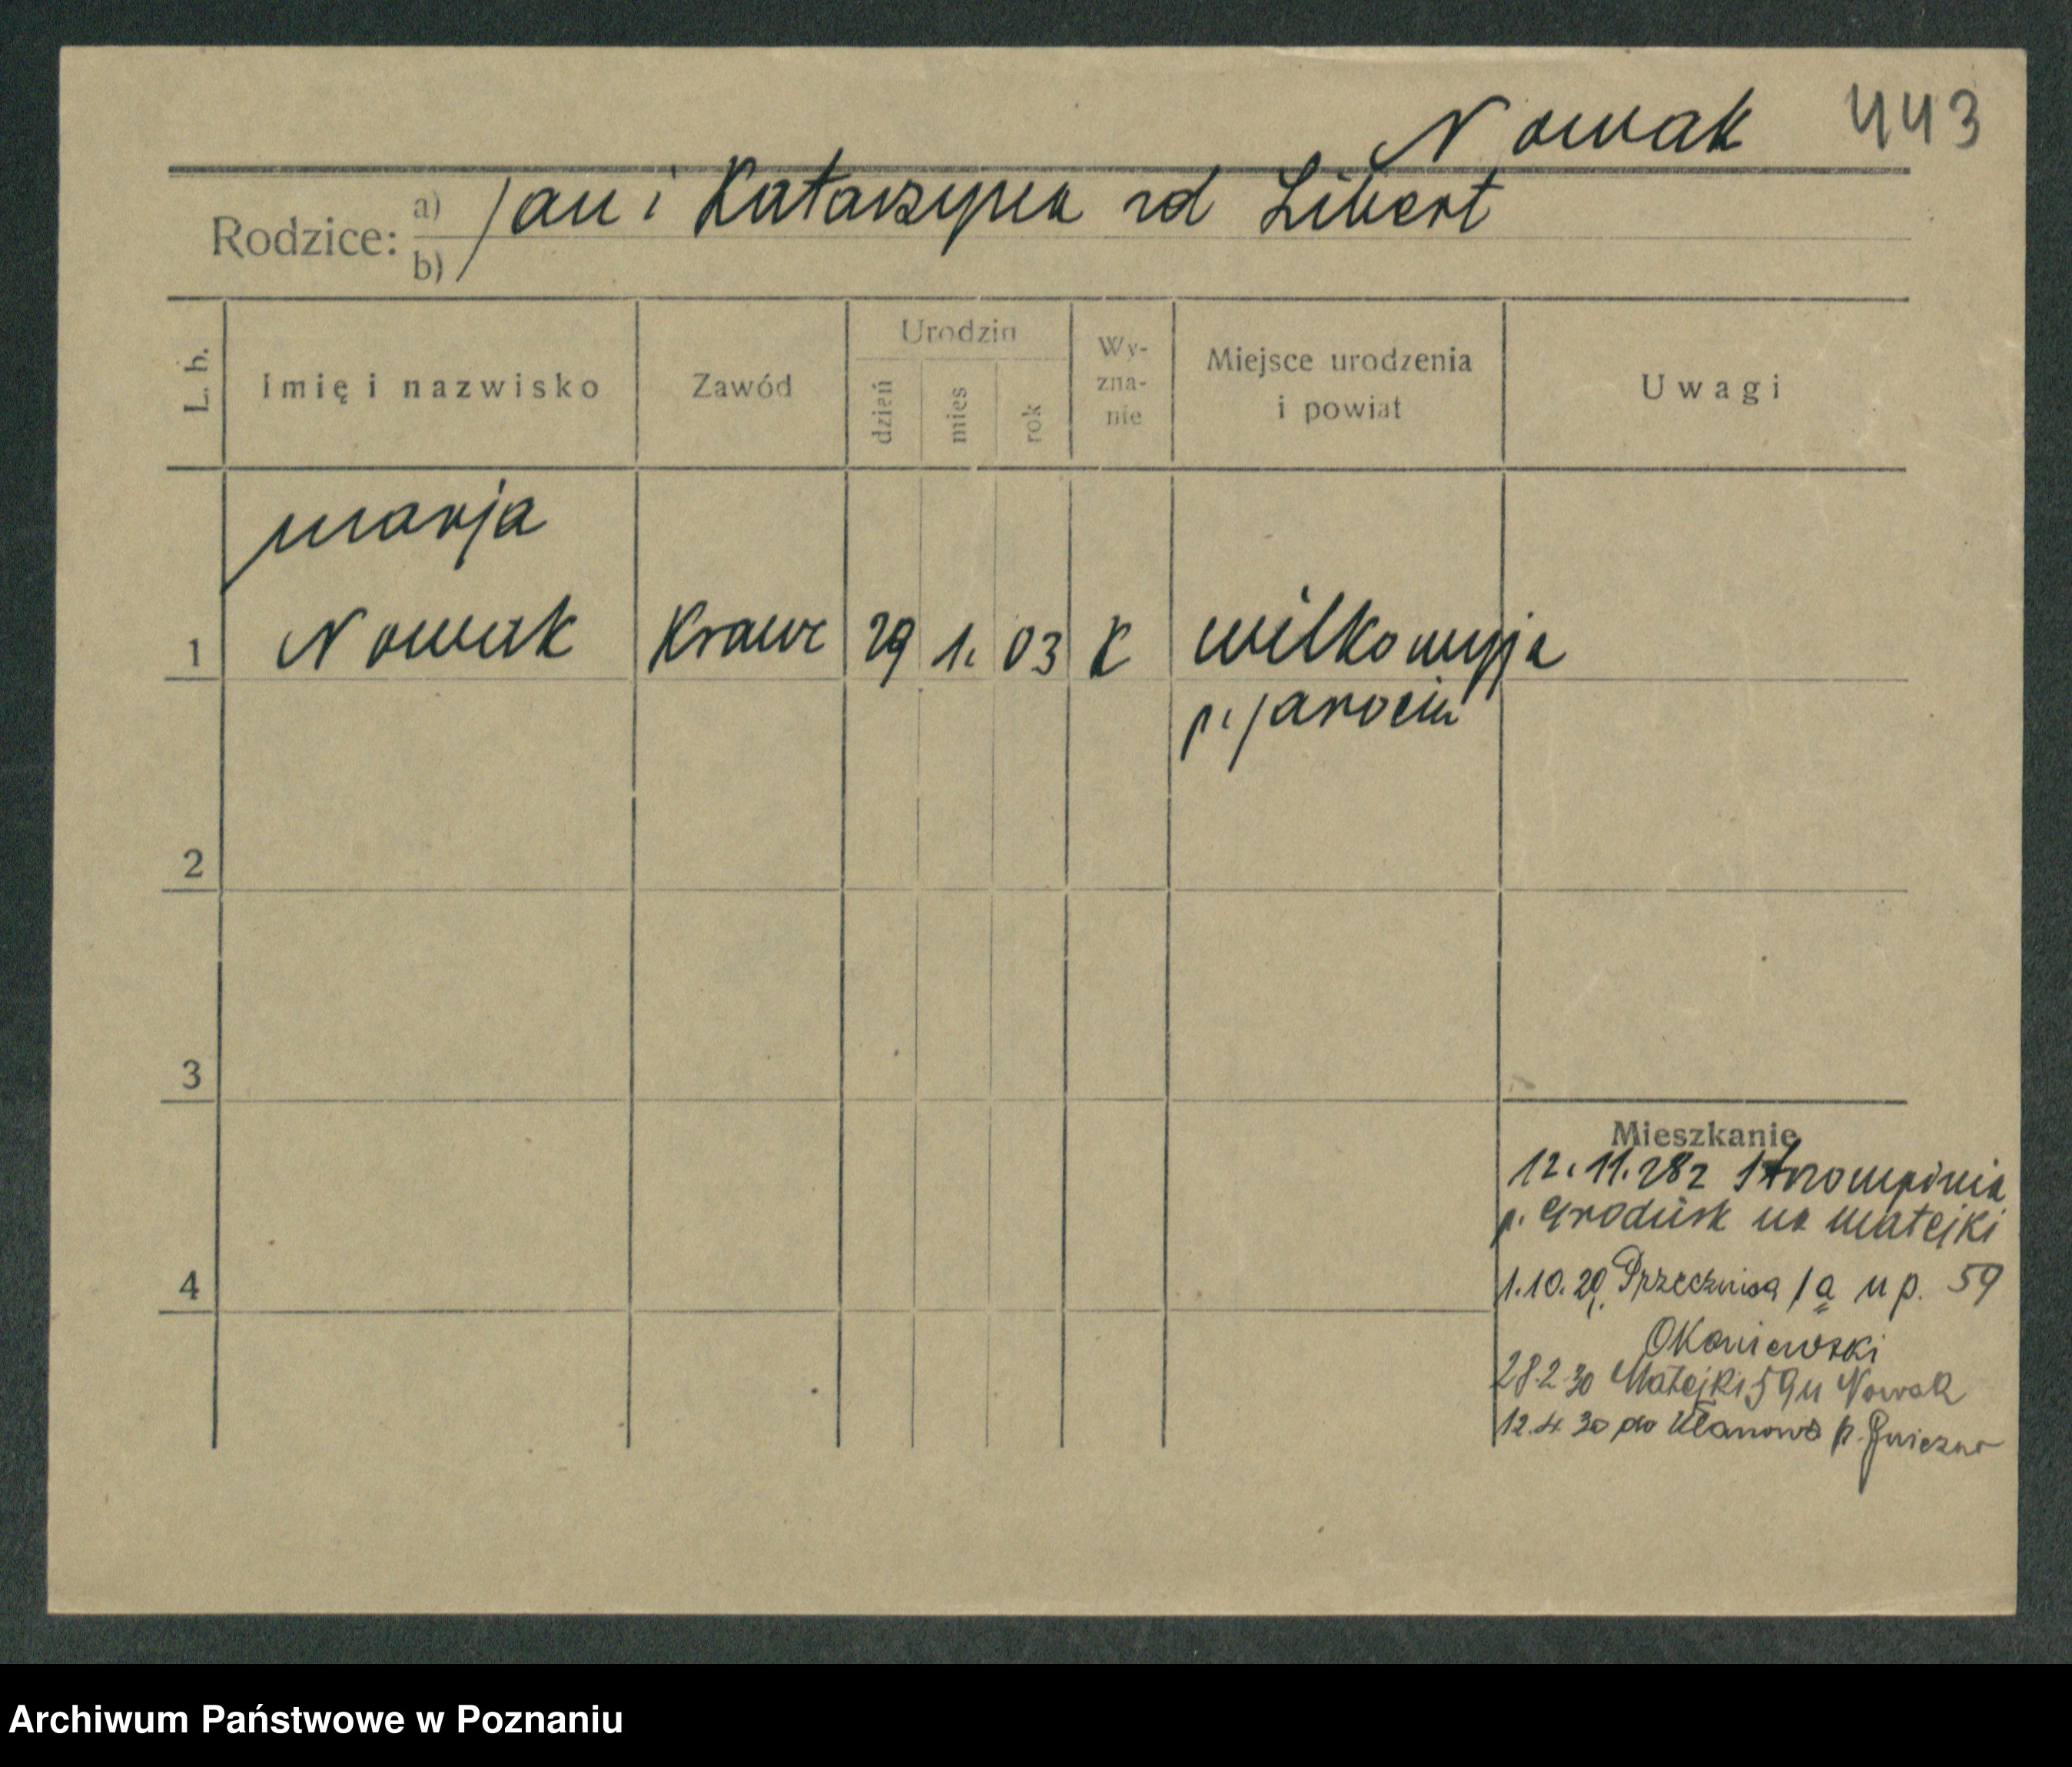 Nowak 443
Rodzice: a) Jan i Katarzyna rd Libert
b)
L. b. Imię i nazwisko Zawód Urodzin dzień mies rok Wy-zna-nie Miejsce urodzenia i powiat Uwagi
Marja
1 Nowak Krawc 29 1. 03 K Wilkowyja
p. Jarocin
2
3
Mieszkanie
12.11.28 z
p. Grodzisk na Matejki
4 1.10.29. Przecznica 1a u p. 59
Okoniewski
28.2.30 Matejki 59 u Nowak
12.4.30 do Ułanowo p. Gniezno
Archiwum Państwowe w Poznaniu